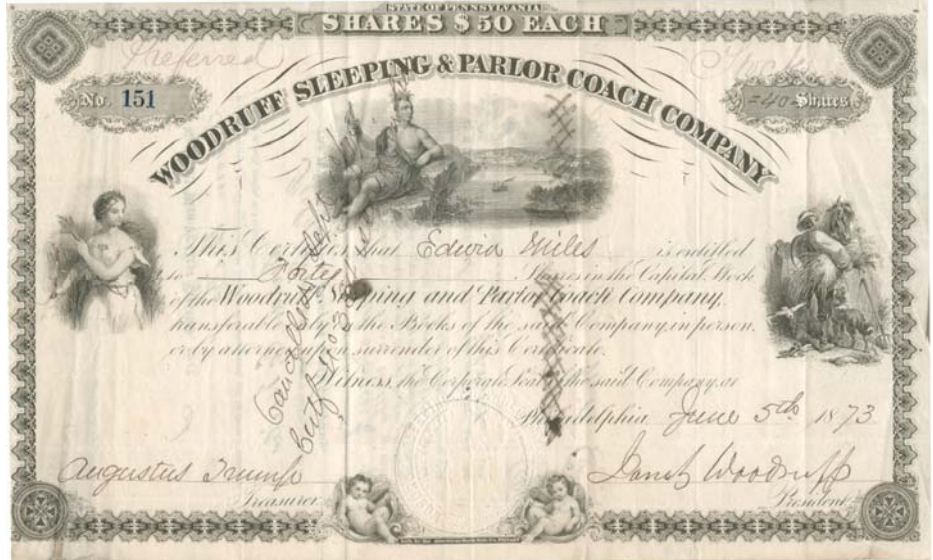 STATE OF PENNSYLVANIA
SHARES $50 EACH
Preferred Stock
No. 151
=40= Shares
WOODRUFF SLEEPING & PARLOR COACH COMPANY
This Certifies that Edwin Miles is entitled
to Forty Shares in the Capital Stock
of the Woodruff Sleeping and Parlor Coach Company,
transferable only on the Books of the said Company, in person,
or by attorney upon surrender of this Certificate.
Witness, the Corporate Seal of the said Company at
Philadelphia June 5th 1873
Cancelled
Augustus
Treasurer
Woodruff
President